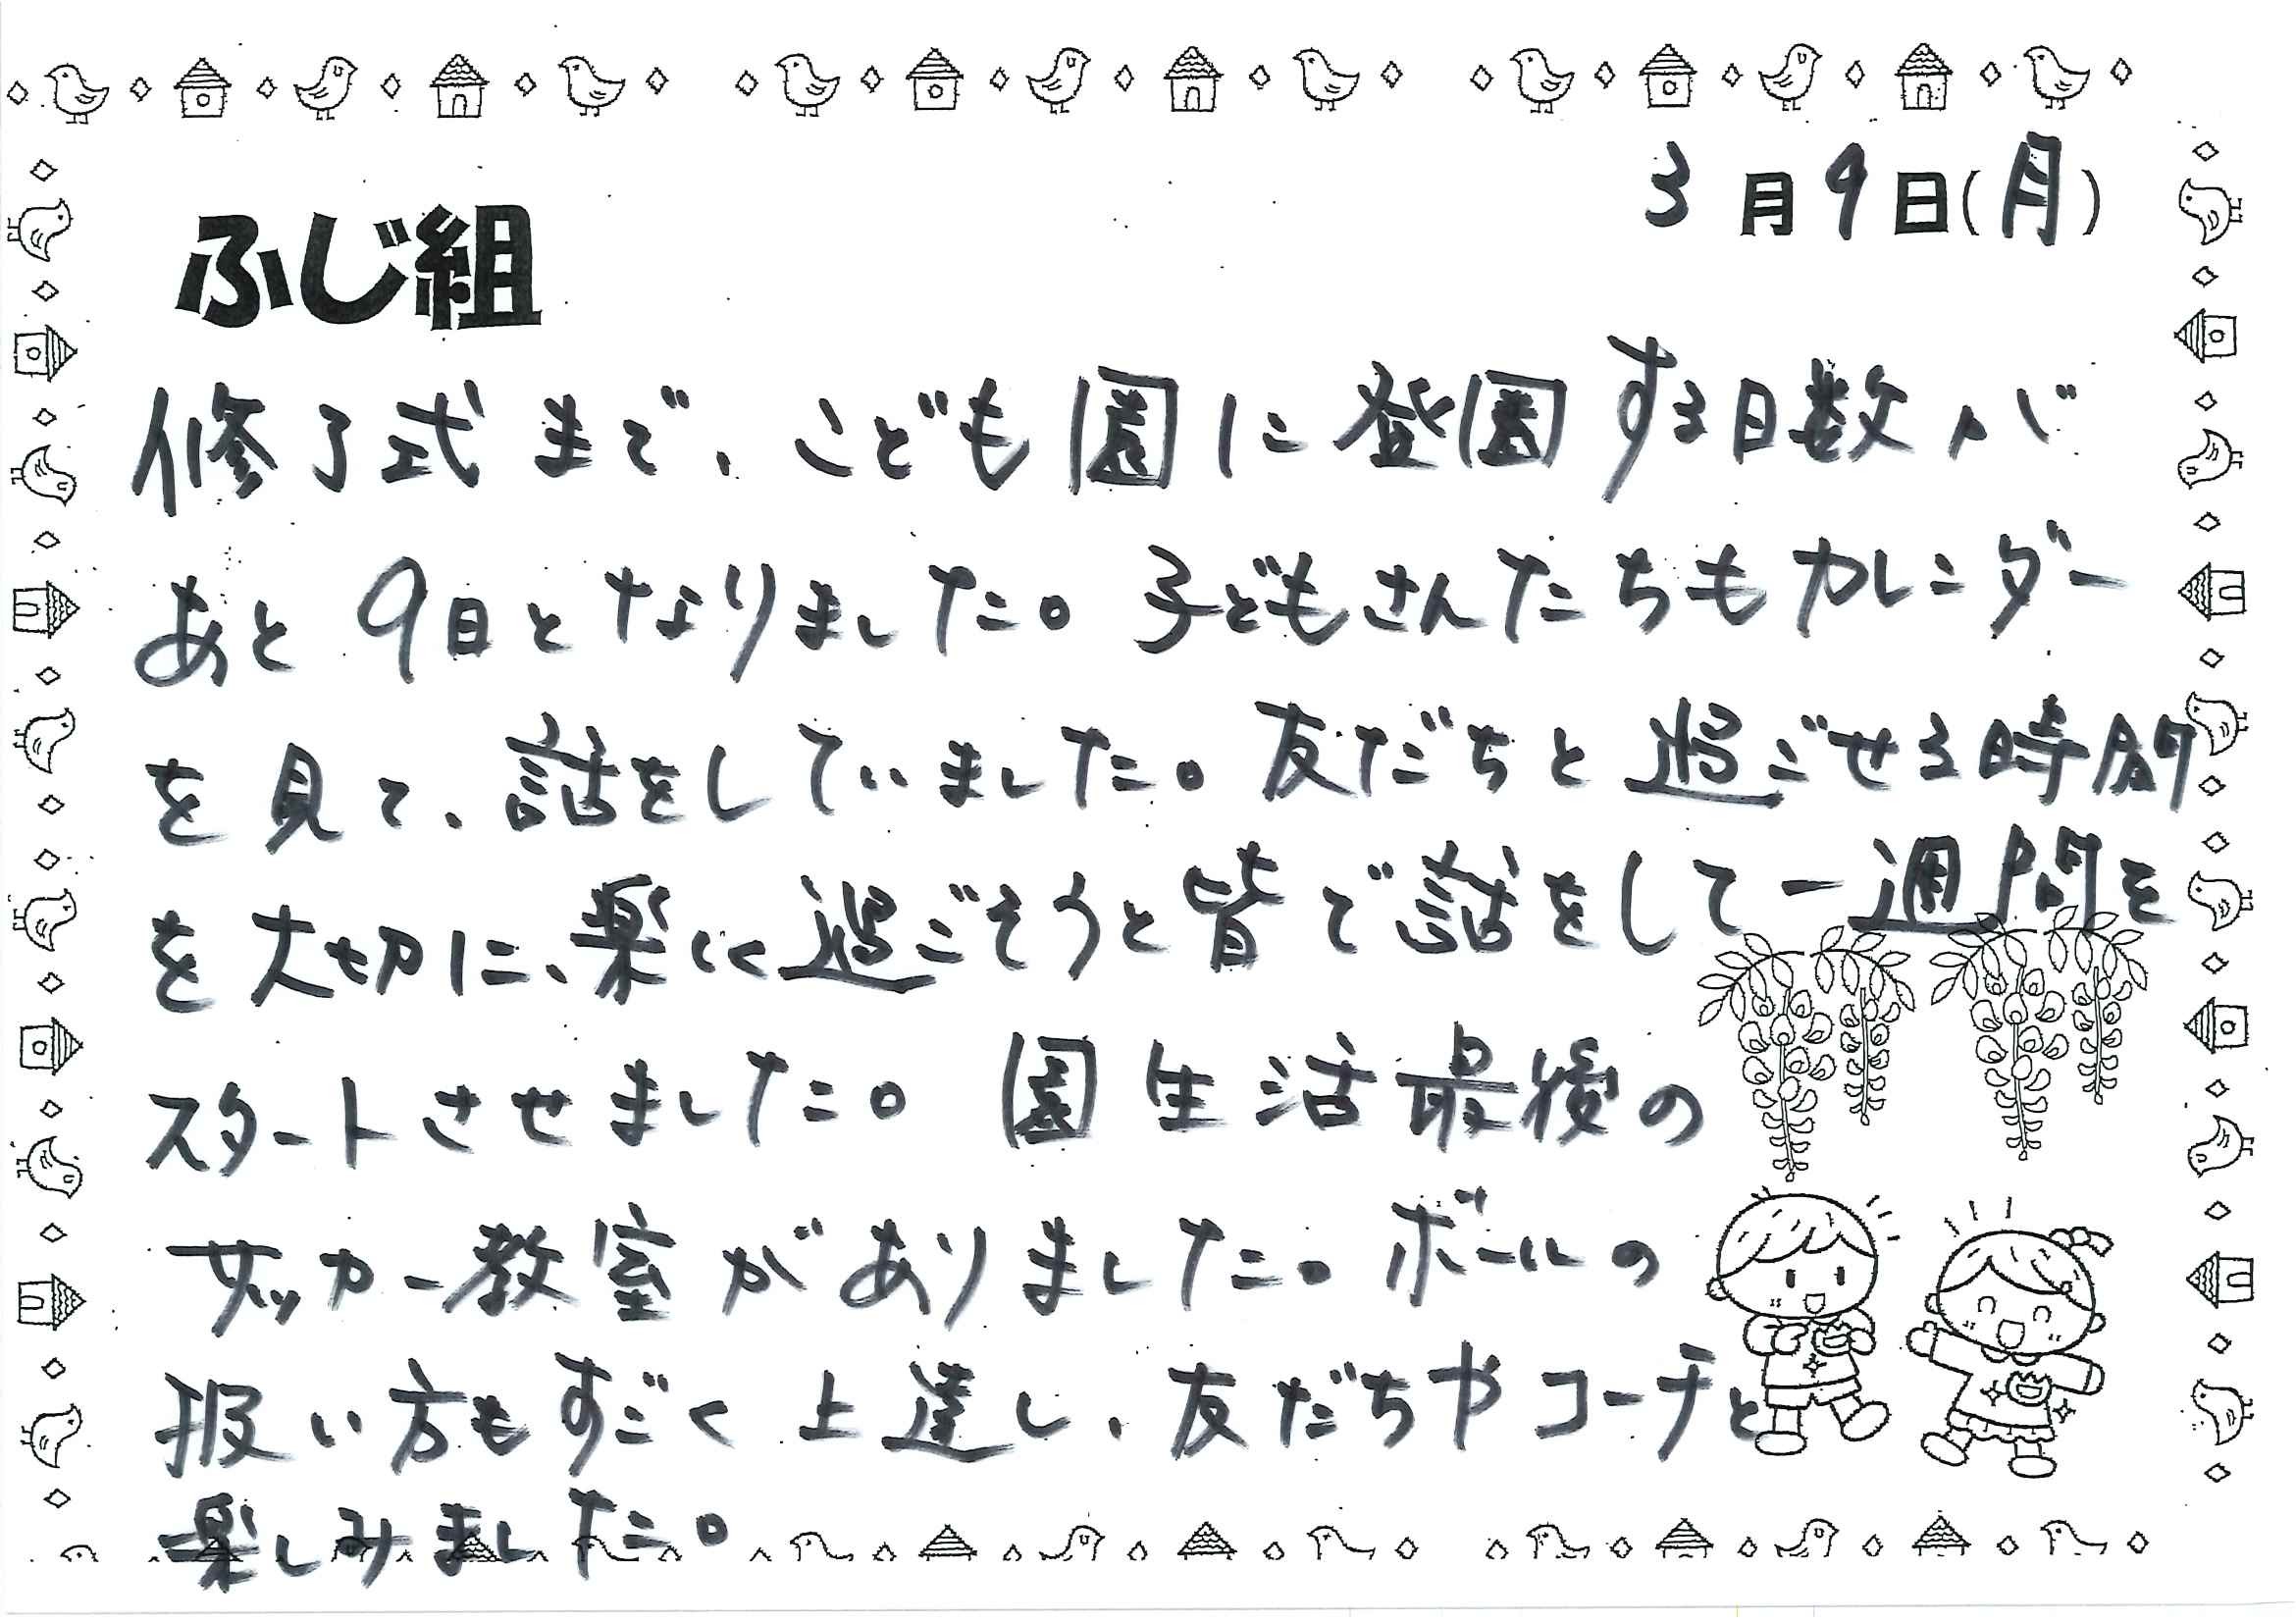 3月9日(月)
ふじ組
修了式まで、こども園に登園する日数が
あと9日となりました。子どもさんたちもカレンダー
を見て、話をしていました。友だちと過ごせる時間
を大切に、楽しく過ごそうと皆で話をして一週間を
スタートさせました。園生活最後の
サッカー教室がありました。ボールの
扱い方もすごく上達し、友だちやコーチと
楽しみました。